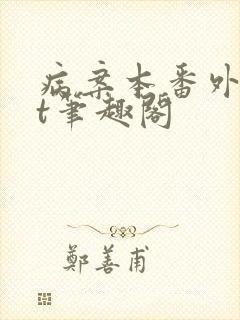 病案本番外
t笔趣阁
鄭善甫